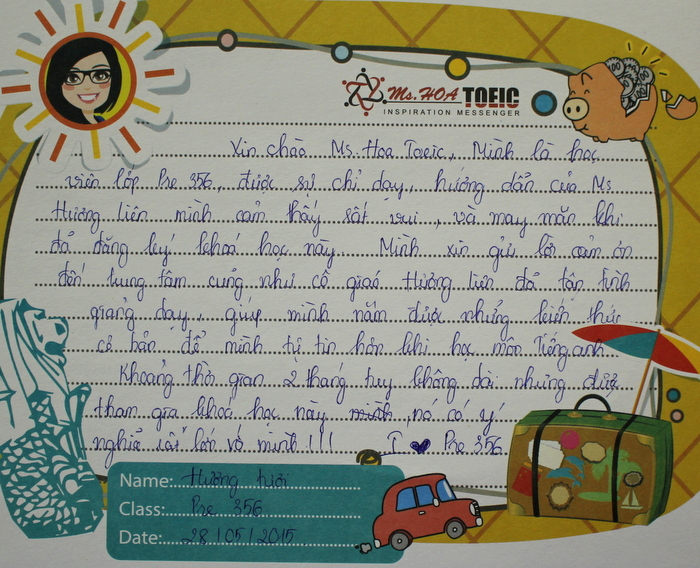 Ms. HOA TOEIC
INSPIRATION MESSENGER
Xin chào Ms. Hoa Toeic, Mình là học
viên lớp Pre 356, được sự chỉ dạy, hướng dẫn của Ms
Hương liên mình cảm thấy rất vui, và may mắn khi
đã đăng ký khoá học này. Mình xin gửi lời cảm ơn
đến trung tâm cũng như cô giáo Hương liên đã tận tình
giảng dạy, giúp mình nắm được những kiến thức
cơ bản để mình tự tin hơn khi học môn Tiếng anh.
Khoảng thời gian 2 tháng tuy không dài nhưng được
tham gia khoá học này, nó có ý
nghĩa rất lớn với mình!!! I ♥ Pre 356
Name: Hương
Class: Pre 356
Date: 28/05/2015